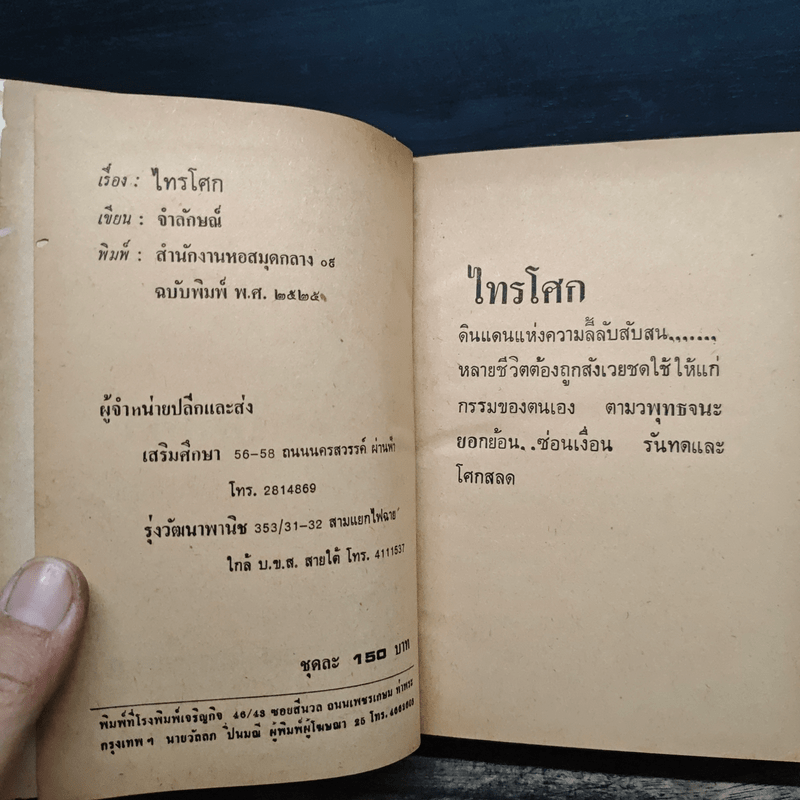 เรื่อง : ไทรโศก
เขียน : จำลักษณ์
พิมพ์ : สำนักงานหอสมุดกลาง ๐๙
ฉบับพิมพ์ พ.ศ. ๒๕๒๕
ผู้จำหน่ายปลีกและส่ง
เสริมศึกษา 56-58 ถนนนครสวรรค์ ผ่านฟ้า
โทร. 2814869
รุ่งวัฒนาพานิช 353/31-32 สามแยกไฟฉาย
ใกล้ บ.ข.ส. สายใต้ โทร. 4111537
ชุดละ 150 บาท
พิมพ์ที่โรงพิมพ์เจริญกิจ 46/43 ซอยสีนวล ถนนเพชรเกษม ท่าพระ
กรุงเทพฯ นายวัลลภ ปิ่นมณี ผู้พิมพ์ผู้โฆษณา 25 โทร.
ไทรโศก
ดินแดนแห่งความลี้ลับสับสน.......
หลายชีวิตต้องถูกสังเวยชดใช้ให้แก่
กรรมของตนเอง ตามวพุทธจนะ
ยอกย้อน..ซ่อนเงื่อน รันทดและ
โศกสลด